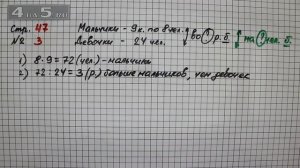 4 on 5 .ru
Стр. 47 Мальчики - 9к. по 8 чел. во ? р. б. на ? чел. б.
№ 3 Девочки - 24 чел.
1) 8·9=72(чел)-мальчики
2) 72:24=3(р.) больше мальчиков, чем девочек